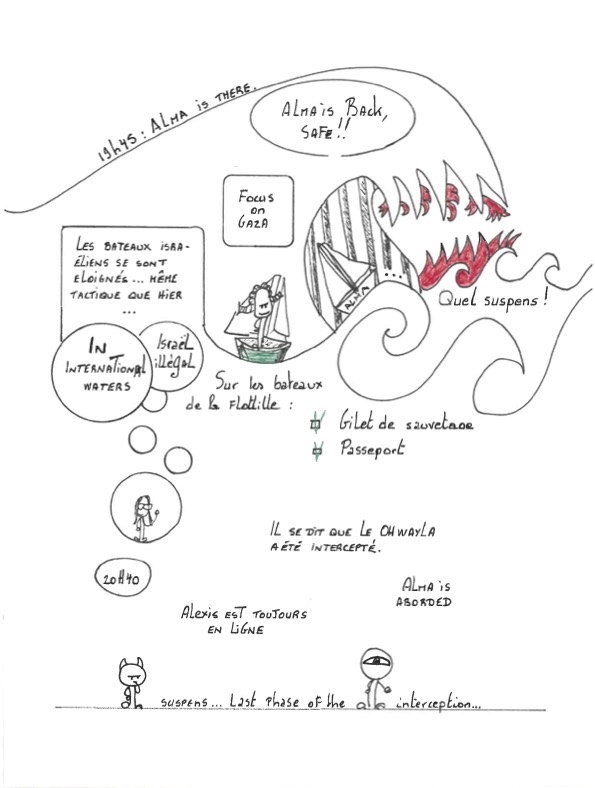 19h45 : ALMA is THERE.
ALMA is BACK,
SAFE !!
Focus
on
GAZA
LES BATEAUX ISRA-
ÉLIENS SE SONT
ELOIGNÉS ... MÊME
TACTIQUE QUE HIER
...
ALMA
...
Quel suspens !
IN
INTERNATIONAL
WATERS
Israël
illégal
Sur les bateaux
de la Flottille :
Gilet de sauvetage
Passeport
IL SE DIT QUE LE OHWAYLA
A ÉTÉ INTERCEPTÉ.
20H40
ALMA is
ABORDED
ALEXIS EST TOUJOURS
EN LIGNE
SUSPENS ... Last PHASE OF the interception...